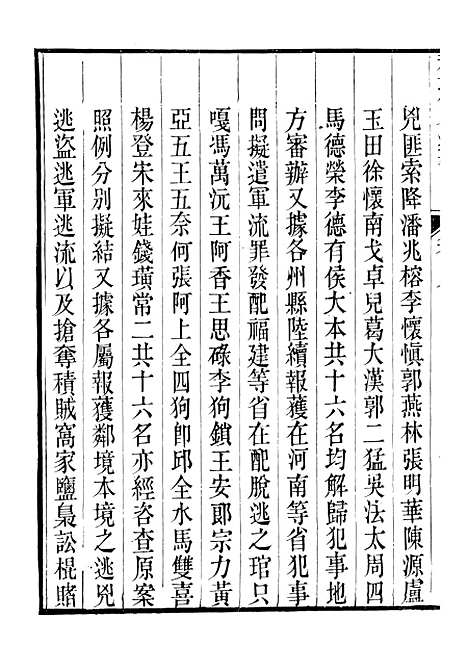 兇匪索降潘兆榕李懷慎郭燕林張明華陳源盧
玉田徐懷南戈卓兒葛大漢郭二猛吳法太周四
馬德榮李德有侯大本共十六名均解歸犯事地
方審辦又據各州縣陸續報獲在河南等省犯事
問擬遣軍流罪發配福建等省在配脫逃之琯只
嘎馮萬沅王阿香王思碌李狗鎖王安郎宗力黃
亞五王五奈何張阿上全四狗卽邱全水馬雙喜
楊登朱來娃錢璜常二共十六名亦經咨查原案
照例分別擬結又據各屬報獲鄰境本境之逃兇
逃盜逃軍逃流以及搶奪積賊窩家鹽梟訟棍賭